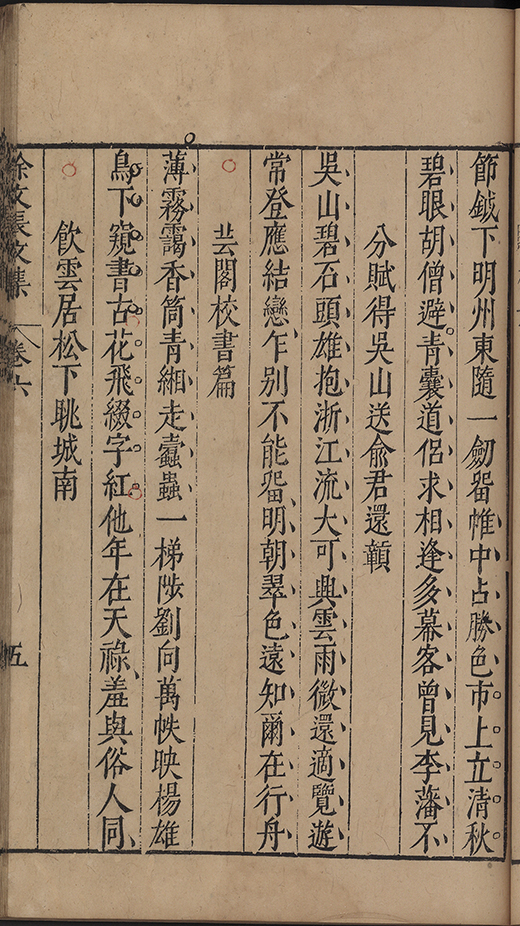 節鉞下明州東隨一劒畱帷中占勝色市上立清秋
碧眼胡僧避青囊道侶求相逢多幕客曾見李藩不
分賦得吳山送俞君還顴
吳山碧石頭雄抱浙江流大可興雲雨微還適覽遊
常登應結戀乍别不能畱明朝翠色遠知爾在行舟
芸閣校書篇
薄霧靄香筒青緗走蠹蟲一梯陟劉向萬帙映楊雄
鳥下窺書古花飛綴字紅他年在天祿羞與俗人同
飲雲居松下眺城南
徐文長文集
卷六
五